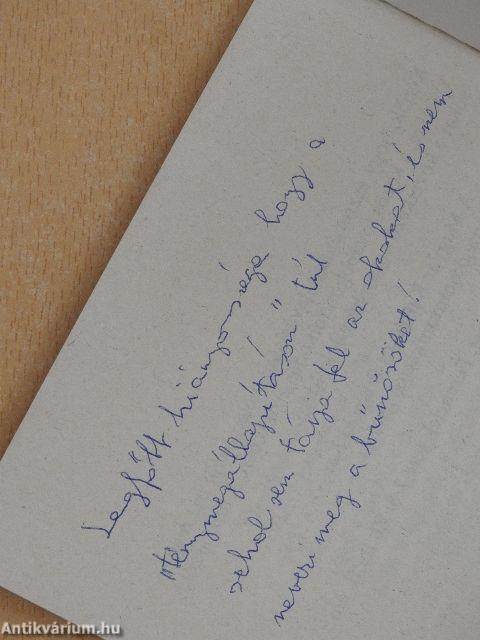 Legfőbb hiányossága hogy a
"ténymegállapításon" túl
sehol sem tárja fel az okokat, és nem
nevezi meg a bűnösöket!
Antikvárium.hu